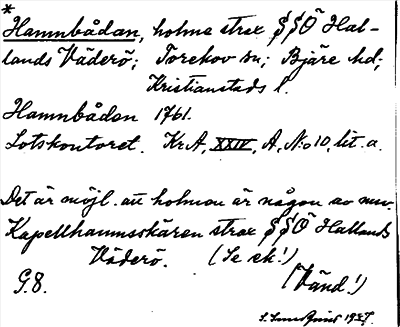 *
Hamnbådan, holme strax SSÖ Hal-
lands Väderö; Torekov sn; Bjäre hd;
Kristianstads l.
Hamnbåden 1761.
Lotskontoret. KrA, XXIV, A, N:o 10, lit. a.
Det är möjl. att holmen är någon av nuv.
Kapellhamnsskären strax SSÖ Hallands
Väderö. (Se ek!)
G.8.
(Vänd!)
1937.